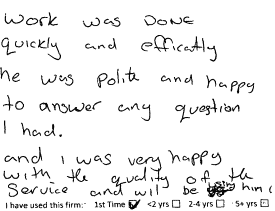 Work was DONE
quickly and efficatly
he was polite and happy
to answer any question
I had.
and i was very happy
with the quality of the
Service and wil be him
I have used this firm: 1st Time ☑ <2 yrs ☐ 2-4 yrs ☐ 5+ yrs ☐